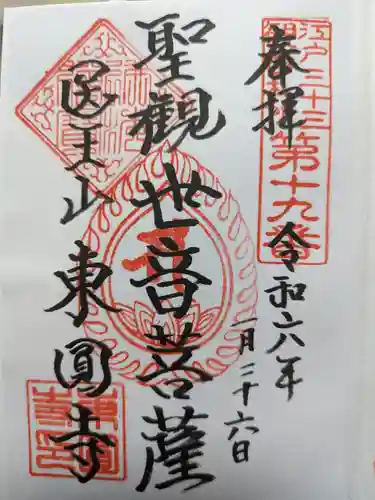 奉拝
江戸三十三
第十九番
令和六年
一月二十六日
聖觀世音菩薩
医王山
東圓寺